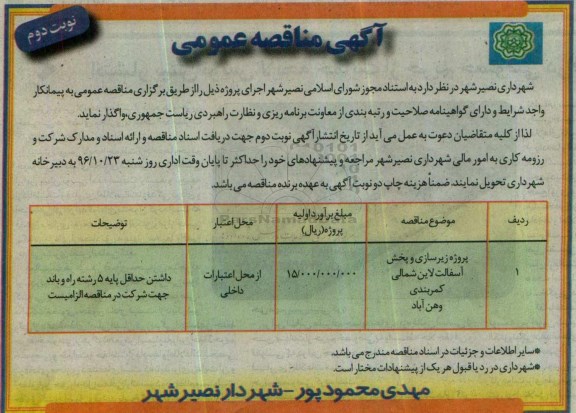 نوبت دوم
آگهی مناقصه عمومی
شهرداری نصیرشهر در نظر دارد به استناد مجوز شورای اسلامی نصیرشهر اجرای پروژه ذیل را از طریق برگزاری مناقصه عمومی به پیمانکار
واجد شرایط و دارای گواهینامه صلاحیت و رتبه بندی از معاونت برنامه ریزی و نظارت راهبردی ریاست جمهوری، واگذار نماید.
لذا از کلیه متقاضیان دعوت به عمل می آید از تاریخ انتشار آگهی نوبت دوم جهت دریافت اسناد مناقصه و ارائه اسناد و مدارک شرکت و
رزومه کاری به امور مالی شهرداری نصیرشهر مراجعه و پیشنهادهای خود را حداکثر تا پایان وقت اداری روز شنبه ۹۶/۱۰/۲۳ به دبیرخانه
شهرداری تحویل نمایند. ضمناً هزینه چاپ دو نوبت آگهی به عهده برنده مناقصه می باشد.
ردیف موضوع مناقصه مبلغ برآورد اولیه پروژه (ریال) محل اعتبار توضیحات
۱ پروژه زیرسازی و پخش آسفالت لاین شمالی کمربندی وهن آباد ۱۵/۰۰۰/۰۰۰/۰۰۰ از محل اعتبارات داخلی داشتن حداقل پایه ۵ رشته راه و باند جهت شرکت در مناقصه الزامیست
*سایر اطلاعات و جزئیات در اسناد مناقصه مندرج می باشد.
*شهرداری در رد یا قبول هر یک از پیشنهادات مختار است.
مهدی محمودپور - شهردار نصیرشهر